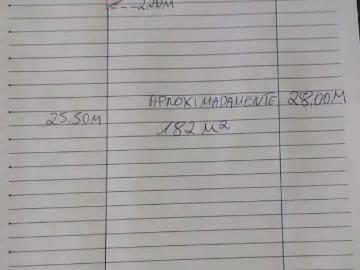 2,00M
APROXIMADAMENTE 28,00M
25,50M
182 M²